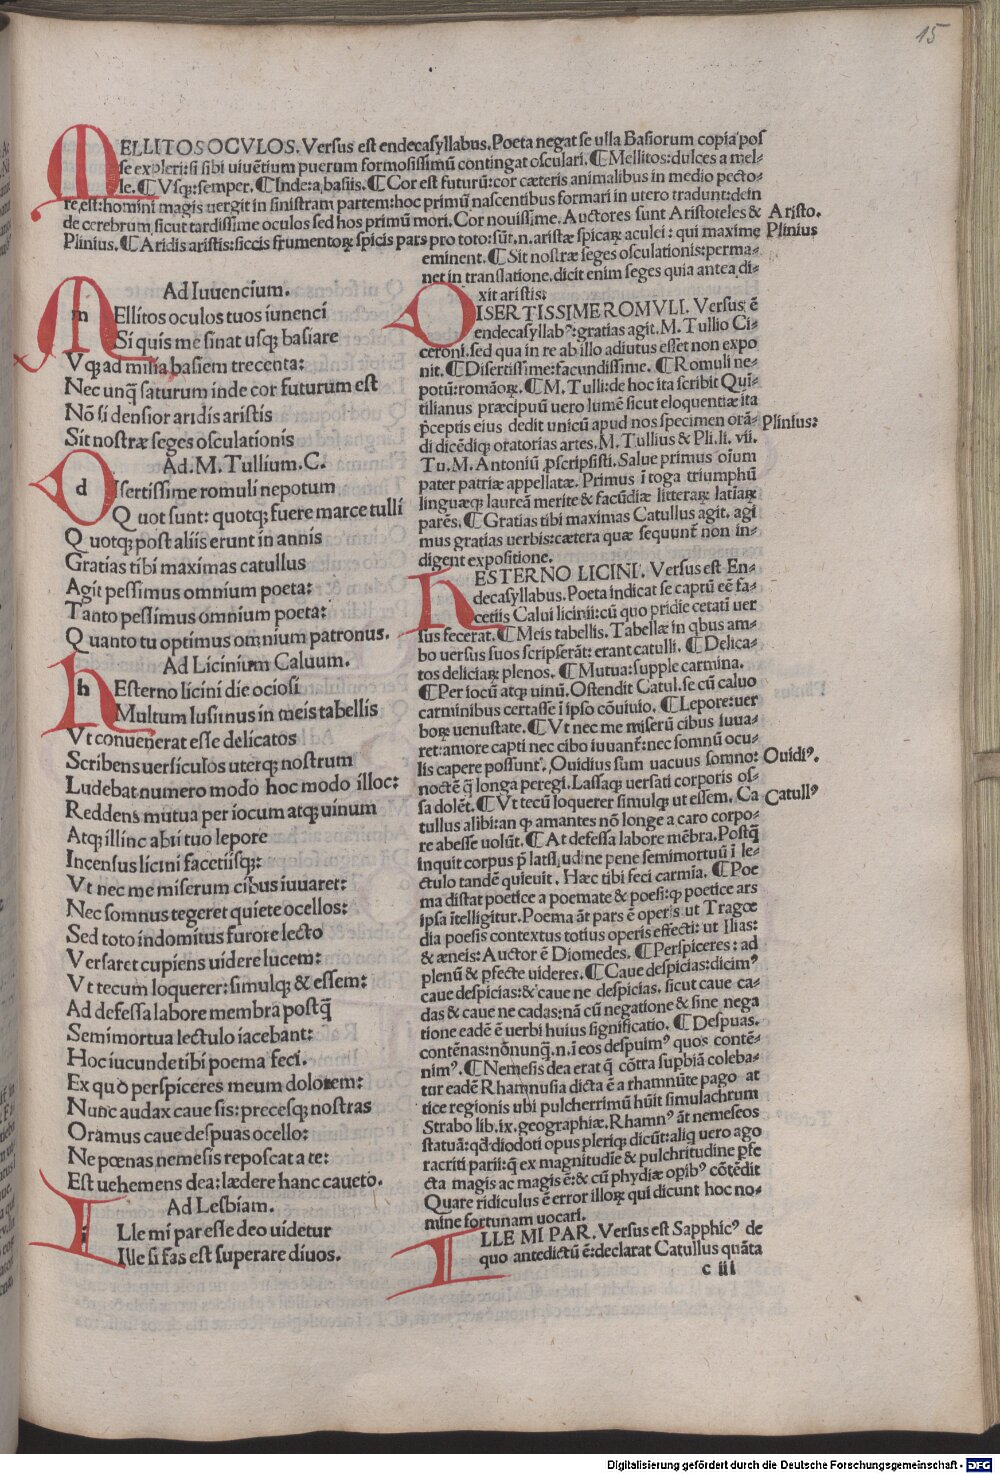 15
MELLITOS OCVLOS. Versus est endecasyllabus. Poeta negat se ulla Basiorum copia pos
se expleri: si sibi uiuẽtium puerum formosissimũ contingat osculari. ¶ Mellitos: dulces a mel-
le. ¶ Vsq;: semper. ¶ Inde: a, basiis. ¶ Cor est futurũ: cor cæteris animalibus in medio pecto-
re, est: homini magis uergit in sinistram partem: hoc primũ nascentibus formari in utero tradunt: dein
de cerebrum sicut tardissime oculos sed hos primũ mori. Cor nouissime. Auctores sunt Aristoteles &
Aristo.
Plinius. ¶ Aridis aristis: siccis frumentoꝝ spicis pars pro toto: sũt. n. aristæ spicaꝝ aculei: qui maxime
Plinius
eminent. ¶ Sit nostræ seges osculationis: perma-
net in translatione. dicit enim seges quia antea di-
xit aristis:
Ad Iuuencium.
m Ellitos oculos tuos iunenci
Si quis me sinat usq; basiare
Vq; ad milia basiem trecenta:
Nec unq̃ saturum inde cor futurum est
Nõ si densior aridis aristis
Sit nostræ seges osculationis
Ad. M. Tullium. C.
d Isertissime romuli nepotum
Quot sunt: quotq; fuere marce tulli
Quotq; post aliis erunt in annis
Gratias tibi maximas catullus
Agit pessimus omnium poeta:
Tanto pessimus omnium poeta:
Quanto tu optimus omnium patronus.
Ad Licinium Caluum.
h Esterno licini die ociosi
Multum lusimus in meis tabellis
Vt conuenerat esse delicatos
Scribens uersiculos uterq; nostrum
Ludebat numero modo hoc modo illoc:
Reddens mutua per iocum atq; uinum
Atq; illinc abii tuo lepore
Incensus licini facetiisq;:
Vt nec me miserum cibus iuuaret:
Nec somnus tegeret quiete ocellos:
Sed toto indomitus furore lecto
Versaret cupiens uidere lucem:
Vt tecum loquerer: simulq; & essem:
Ad defessa labore membra postq̃
Semimortua lectulo iacebant:
Hoc iucunde tibi poema feci.
Ex quo perspiceres meum dolorem:
Nunc audax caue sis: precesq; nostras
Oramus caue despuas ocello:
Ne pœnas nemesis reposcat a te:
Est uehemens dea: lædere hanc caueto.
Ad Lesbiam.
i Lle mi par esse deo uidetur
Ille si fas est superare diuos.
DISERTISSIME ROMVLI. Versus ẽ
endecasyllabꝰ: gratias agit. M. Tullio Ci-
ceroni. sed qua in re ab illo adiutus esset non expo
nit. ¶ Disertissime: facundissime. ¶ Romuli ne-
potũ: romãoꝝ. ¶ M. Tulli: de hoc ita scribit Qui-
tilianus præcipuũ uero lumẽ sicut eloquentiæ ita
p̃ceptis eius dedit unicũ apud nos specimen orã-
Plinius:
di dicẽdiq; oratorias artes. M. Tullius & Pli. li. vii.
Tu. M. Antoniũ ꝓscripsisti. Salue primus oĩum
pater patriæ appellatæ. Primus ĩ toga triumphũ
linguæq; laureã merite & facũdiæ litteraꝝ latiaꝝ
parẽs. ¶ Gratias tibi maximas Catullus agit. agi
mus gratias uerbis: cætera quæ sequũt̃ non in-
digent expositione.
HESTERNO LICINI. Versus est En-
decasyllabus. Poeta indicat se captũ eẽ fa-
cetiis Calui licinii: cũ quo pridie cetatĩ uer
sus fecerat. ¶ Meis tabellis. Tabellæ in qbus am-
bo uersus suos scripserãt: erant catulli. ¶ Delica-
tos deliciaꝝ plenos. ¶ Mutua: supple carmina.
¶ Per iocũ atq; uinũ. Ostendit Catul. se cũ caluo
carminibus certasse ĩ ipso cõuiuio. ¶ Lepore: uer
boꝝ uenustate. ¶ Vt nec me miserũ cibus iuua-
ret: amore capti nec cibo iuuant̃: nec somnũ ocu-
lis capere possunt. Ouidius sum uacuus somno:
Ouidiꝰ.
noctẽ q̃ longa peregi. Lassaq; uersati corporis os-
sa dolẽt. ¶ Vt tecũ loquerer simulq; ut essem. Ca
Catullꝰ
tullus alibi: an q; amantes nõ longe a caro corpo-
re abesse uolũt. ¶ At defessa labore mẽbra. Postq̃
inquit corpus
ctulo tandẽ quieuit. Hæc tibi feci carmia. ¶ Poe
ma distat poetice a poemate & poesi: q; poetice ars
ipsa ĩtelligitur. Poema ãt pars ẽ operis ut Tragœ
dia poesis contextus totius operis effecti: ut Ilias:
& æneis: Auctor ẽ Diomedes. ¶ Perspiceres: ad
plenũ & ꝑfecte uideres. ¶ Caue despicias: dicimꝰ
caue despicias: & caue ne despicias. sicut caue ca-
das & caue ne cadas: nã cũ negatione & sine nega
tione eadẽ ẽ uerbi huius significatio. ¶ Despuas.
contẽnas: nõnunq̃. n. ĩ eos despuimꝰ quos contẽ-
nimꝰ. ¶ Nemesis dea erat q̃ cõtra supbiã coleba-
tur eadẽ Rhamnusia dicta ẽ a rhamnũte pago at
tice regionis ubi pulcherrimũ hũit simulachrum
Strabo lib. ix. geographiæ. Rhamnꝰ ãt nemeseos
statuã: qđ diodoti opus pleriq; dicũt: aliq uero ago
racriti parii: q̃ ex magnitudĩe & pulchritudine ꝑfe
cta magis ac magis ẽ: & cũ phydiæ opibꝰ cõtẽdit
Quare ridiculus ẽ error illoꝝ qui dicunt hoc no-
mine fortunam uocari.
ILLE MI PAR. Versus est Sapphicꝰ de
quo antedictũ ẽ: declarat Catullus quãta
c iii
Digitalisierung gefördert durch die Deutsche Forschungsgemeinschaft - DFG